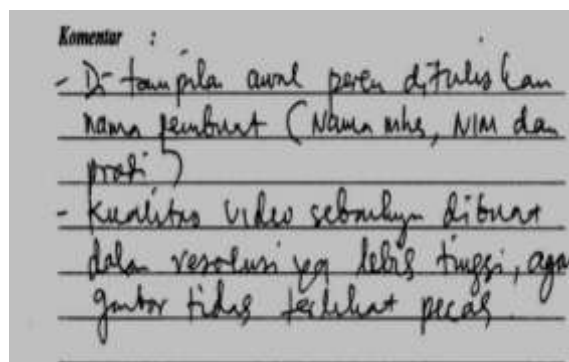 Komentar :
- Di tampilan awal perlu dituliskan
nama pembuat (Nama mhs, NIM dan
prodi)
- Kualitas video sebaiknya dibuat
dalam resolusi yg lebih tinggi, agar
gambar tidak terlihat pecah.